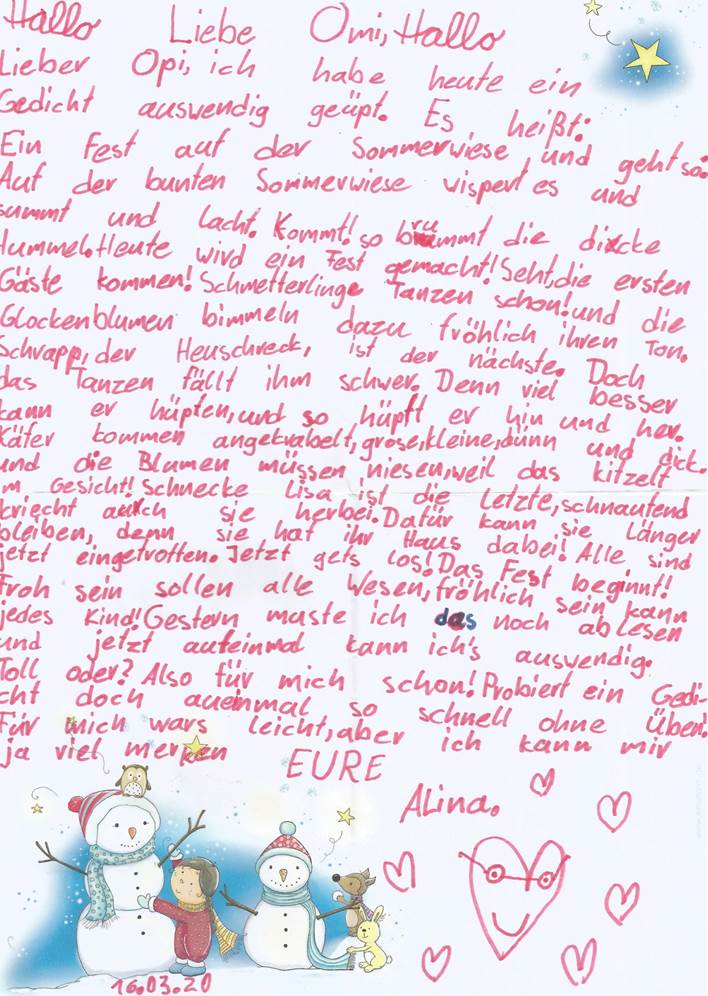 Hallo Liebe Omi, Hallo
Lieber Opi, ich habe heute ein
Gedicht auswendig geüpt. Es heißt:
Ein Fest auf der Sommerwiese, und geht so:
Auf der bunten Sommerwiese vispert es und
summt und lacht. Kommt! so brummt die dicke
Hummel. Heute wird ein Fest gemacht! Seht, die ersten
Gäste kommen! Schmetterlinge Tanzen schon! und die
Glockenblumen bimmeln dazu fröhlich ihren Ton.
Schrapp, der Heuschreck, ist der nächste. Doch
das Tanzen fällt ihm schwer. Denn viel besser
kann er hüpfen, und so hüpft er hin und her.
Käfer kommen angekrabelt, grose, kleine, dünn und dick.
und die Blumen müssen niesen, weil das kitzelt
im Gesicht! Schnecke Lisa ist die Letzte, schnaufend
kriecht auch sie herbei. Dafür kann sie Länger
bleiben, denn sie hat ihr Haus dabei! Alle sind
jetzt eingetroffen. Jetzt gets los! Das Fest beginnt!
Froh sein sollen alle Wesen, fröhlich sein kann
jedes Kind! Gestern muste ich das noch ablesen
und jetzt aufeinmal kann ich's auswendig.
Toll oder? Also für mich schon! Probiert ein Gedi-
cht doch aueinmal so schnell ohne Üben!
Für mich wars leicht, aber ich kann mir
ja viel merken
EURE
Alina.
16.03.20